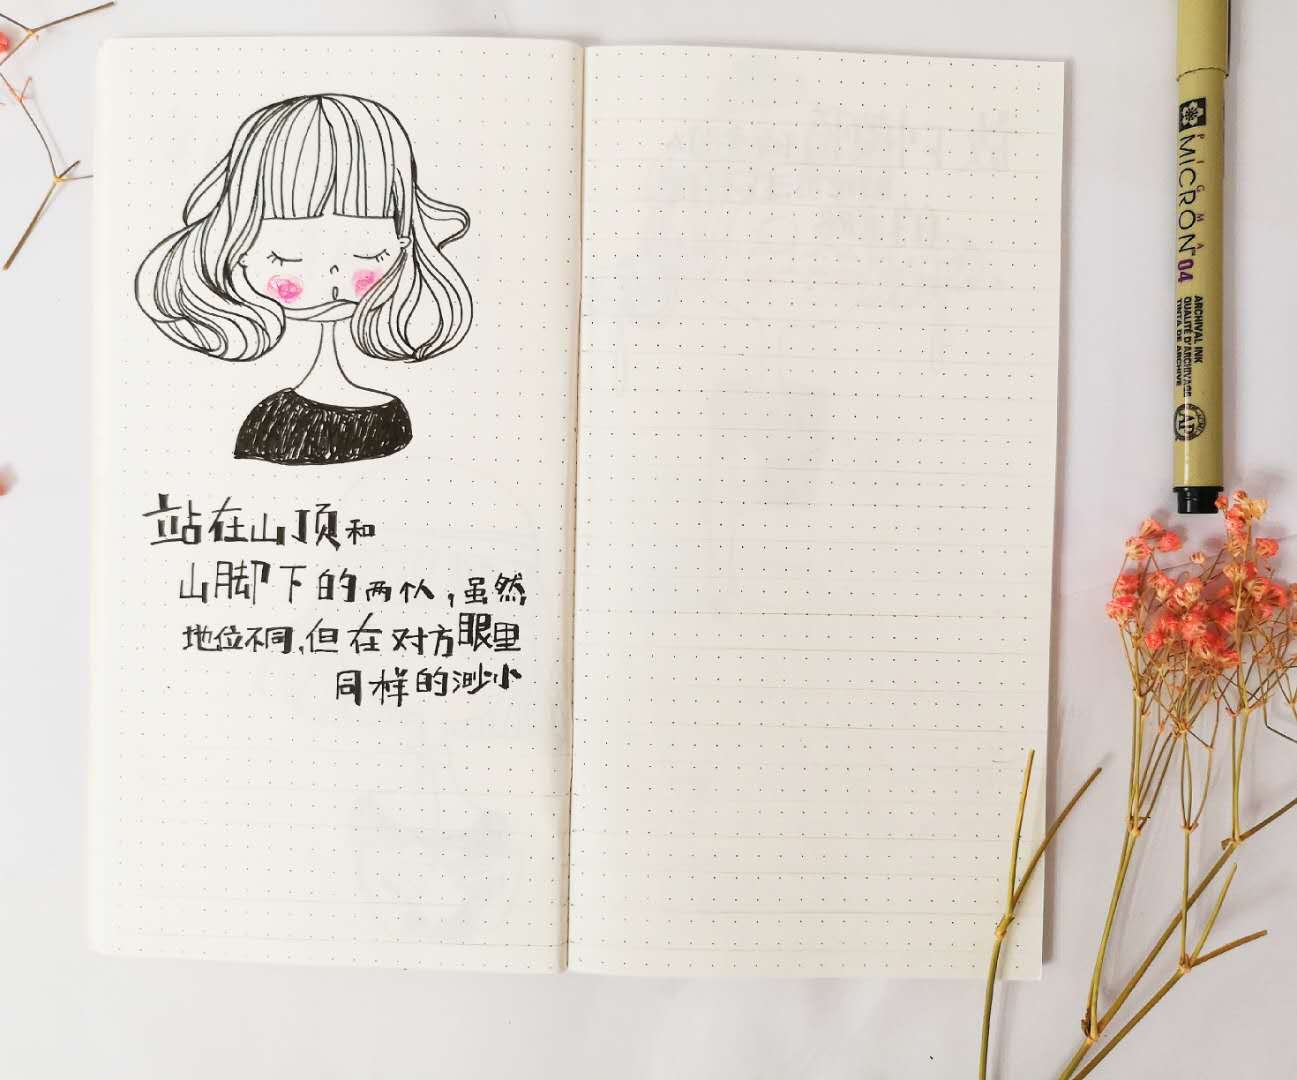 站在山顶和
山脚下的两个人，虽然
地位不同，但在对方眼里
同样的渺小
PIGMA
MICRON™ 04
ARCHIVAL INK
QUALITÉ D'ARCHIVAGE
TINTA DE ARCHIVE